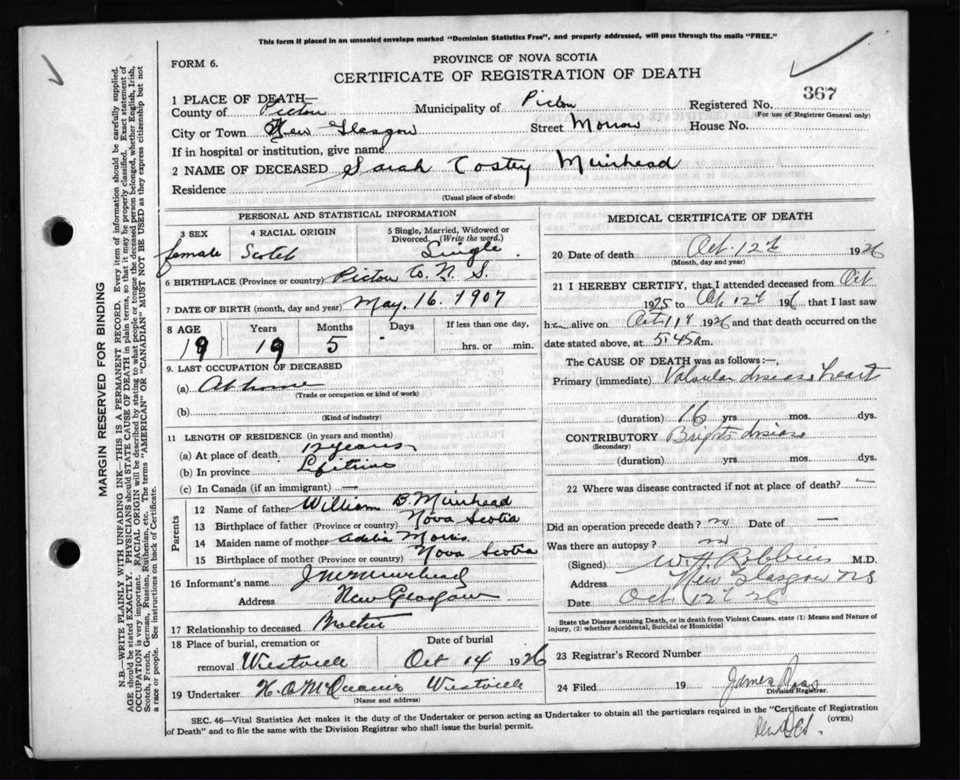 This form if placed in an unsealed envelope marked "Dominion Statistics Free", and properly addressed, will pass through the mails "FREE."
FORM 6.
PROVINCE OF NOVA SCOTIA
CERTIFICATE OF REGISTRATION OF DEATH
367
1 PLACE OF DEATH—
County of Pictou Municipality of Pictou Registered No.
(For use of Registrar General only)
City or Town New Glasgow Street House No.
If in hospital or institution, give name
2 NAME OF DECEASED Sarah Muirhead
Residence
(Usual place of abode)
PERSONAL AND STATISTICAL INFORMATION
3 SEX 4 RACIAL ORIGIN 5 Single, Married, Widowed or Divorced. (Write the word.)
female Scotch Single.
6 BIRTHPLACE (Province or country) Pictou Co. N. S.
7 DATE OF BIRTH (month, day and year) May. 16. 1907
8 AGE Years Months Days If less than one day,
19 19 5 - hrs. or min.
9. LAST OCCUPATION OF DECEASED
(a) At home
(Trade or occupation or kind of work)
(b)
(Kind of industry)
11 LENGTH OF RESIDENCE (in years and months)
(a) At place of death 12 years
(b) In province Lifetime
(c) In Canada (if an immigrant) —
Parents
12 Name of father William B. Muirhead
13 Birthplace of father (Province or country) Nova Scotia
14 Maiden name of mother Morris
15 Birthplace of mother (Province or country) Nova Scotia
16 Informant's name
Address New Glasgow
17 Relationship to deceased
18 Place of burial, cremation or removal Westville Date of burial Oct 14 1926
19 Undertaker Westville
(Name and address)
MEDICAL CERTIFICATE OF DEATH
20 Date of death Oct. 12th 1926
(Month, day and year)
21 I HEREBY CERTIFY, that I attended deceased from Oct
1925 to Oct 12th 1926 that I last saw
h— alive on Oct 11th 1926 and that death occurred on the
date stated above, at 5:45 am.
The CAUSE OF DEATH was as follows:—
Primary (immediate) Valvular disease heart
(duration) 16 yrs. mos. dys.
CONTRIBUTORY Brights disease
(Secondary)
(duration) yrs. mos. dys.
22 Where was disease contracted if not at place of death? —
Did an operation precede death? no Date of —
Was there an autopsy? no
(Signed) W. H. Robbins M.D.
Address New Glasgow N S
Date Oct 12th 26
State the Disease causing Death, or in death from Violent Causes, state (1) Means and Nature of Injury, (2) whether Accidental, Suicidal or Homicidal
23 Registrar's Record Number
24 Filed 19 James Ross
Division Registrar.
SEC. 46—Vital Statistics Act makes it the duty of the Undertaker or person acting as Undertaker to obtain all the particulars required in the "Certificate of Registration of Death" and to file the same with the Division Registrar who shall issue the burial permit.
(OVER)
MARGIN RESERVED FOR BINDING
N.B.—WRITE PLAINLY WITH UNFADING INK—THIS IS A PERMANENT RECORD. Every item of information should be carefully supplied.
AGE should be stated EXACTLY. PHYSICIANS should STATE CAUSE OF DEATH in plain terms, so that it may be properly classified. Exact statement of
OCCUPATION is very important. RACIAL ORIGIN will be described by stating to what people or tongue the deceased person belonged, whether English, Irish,
Scotch, French, German, Russian, Ruthenian, etc. The terms "AMERICAN" or "CANADIAN" MUST NOT BE USED as they express citizenship but not
a race or people. See instructions on back of Certificate.